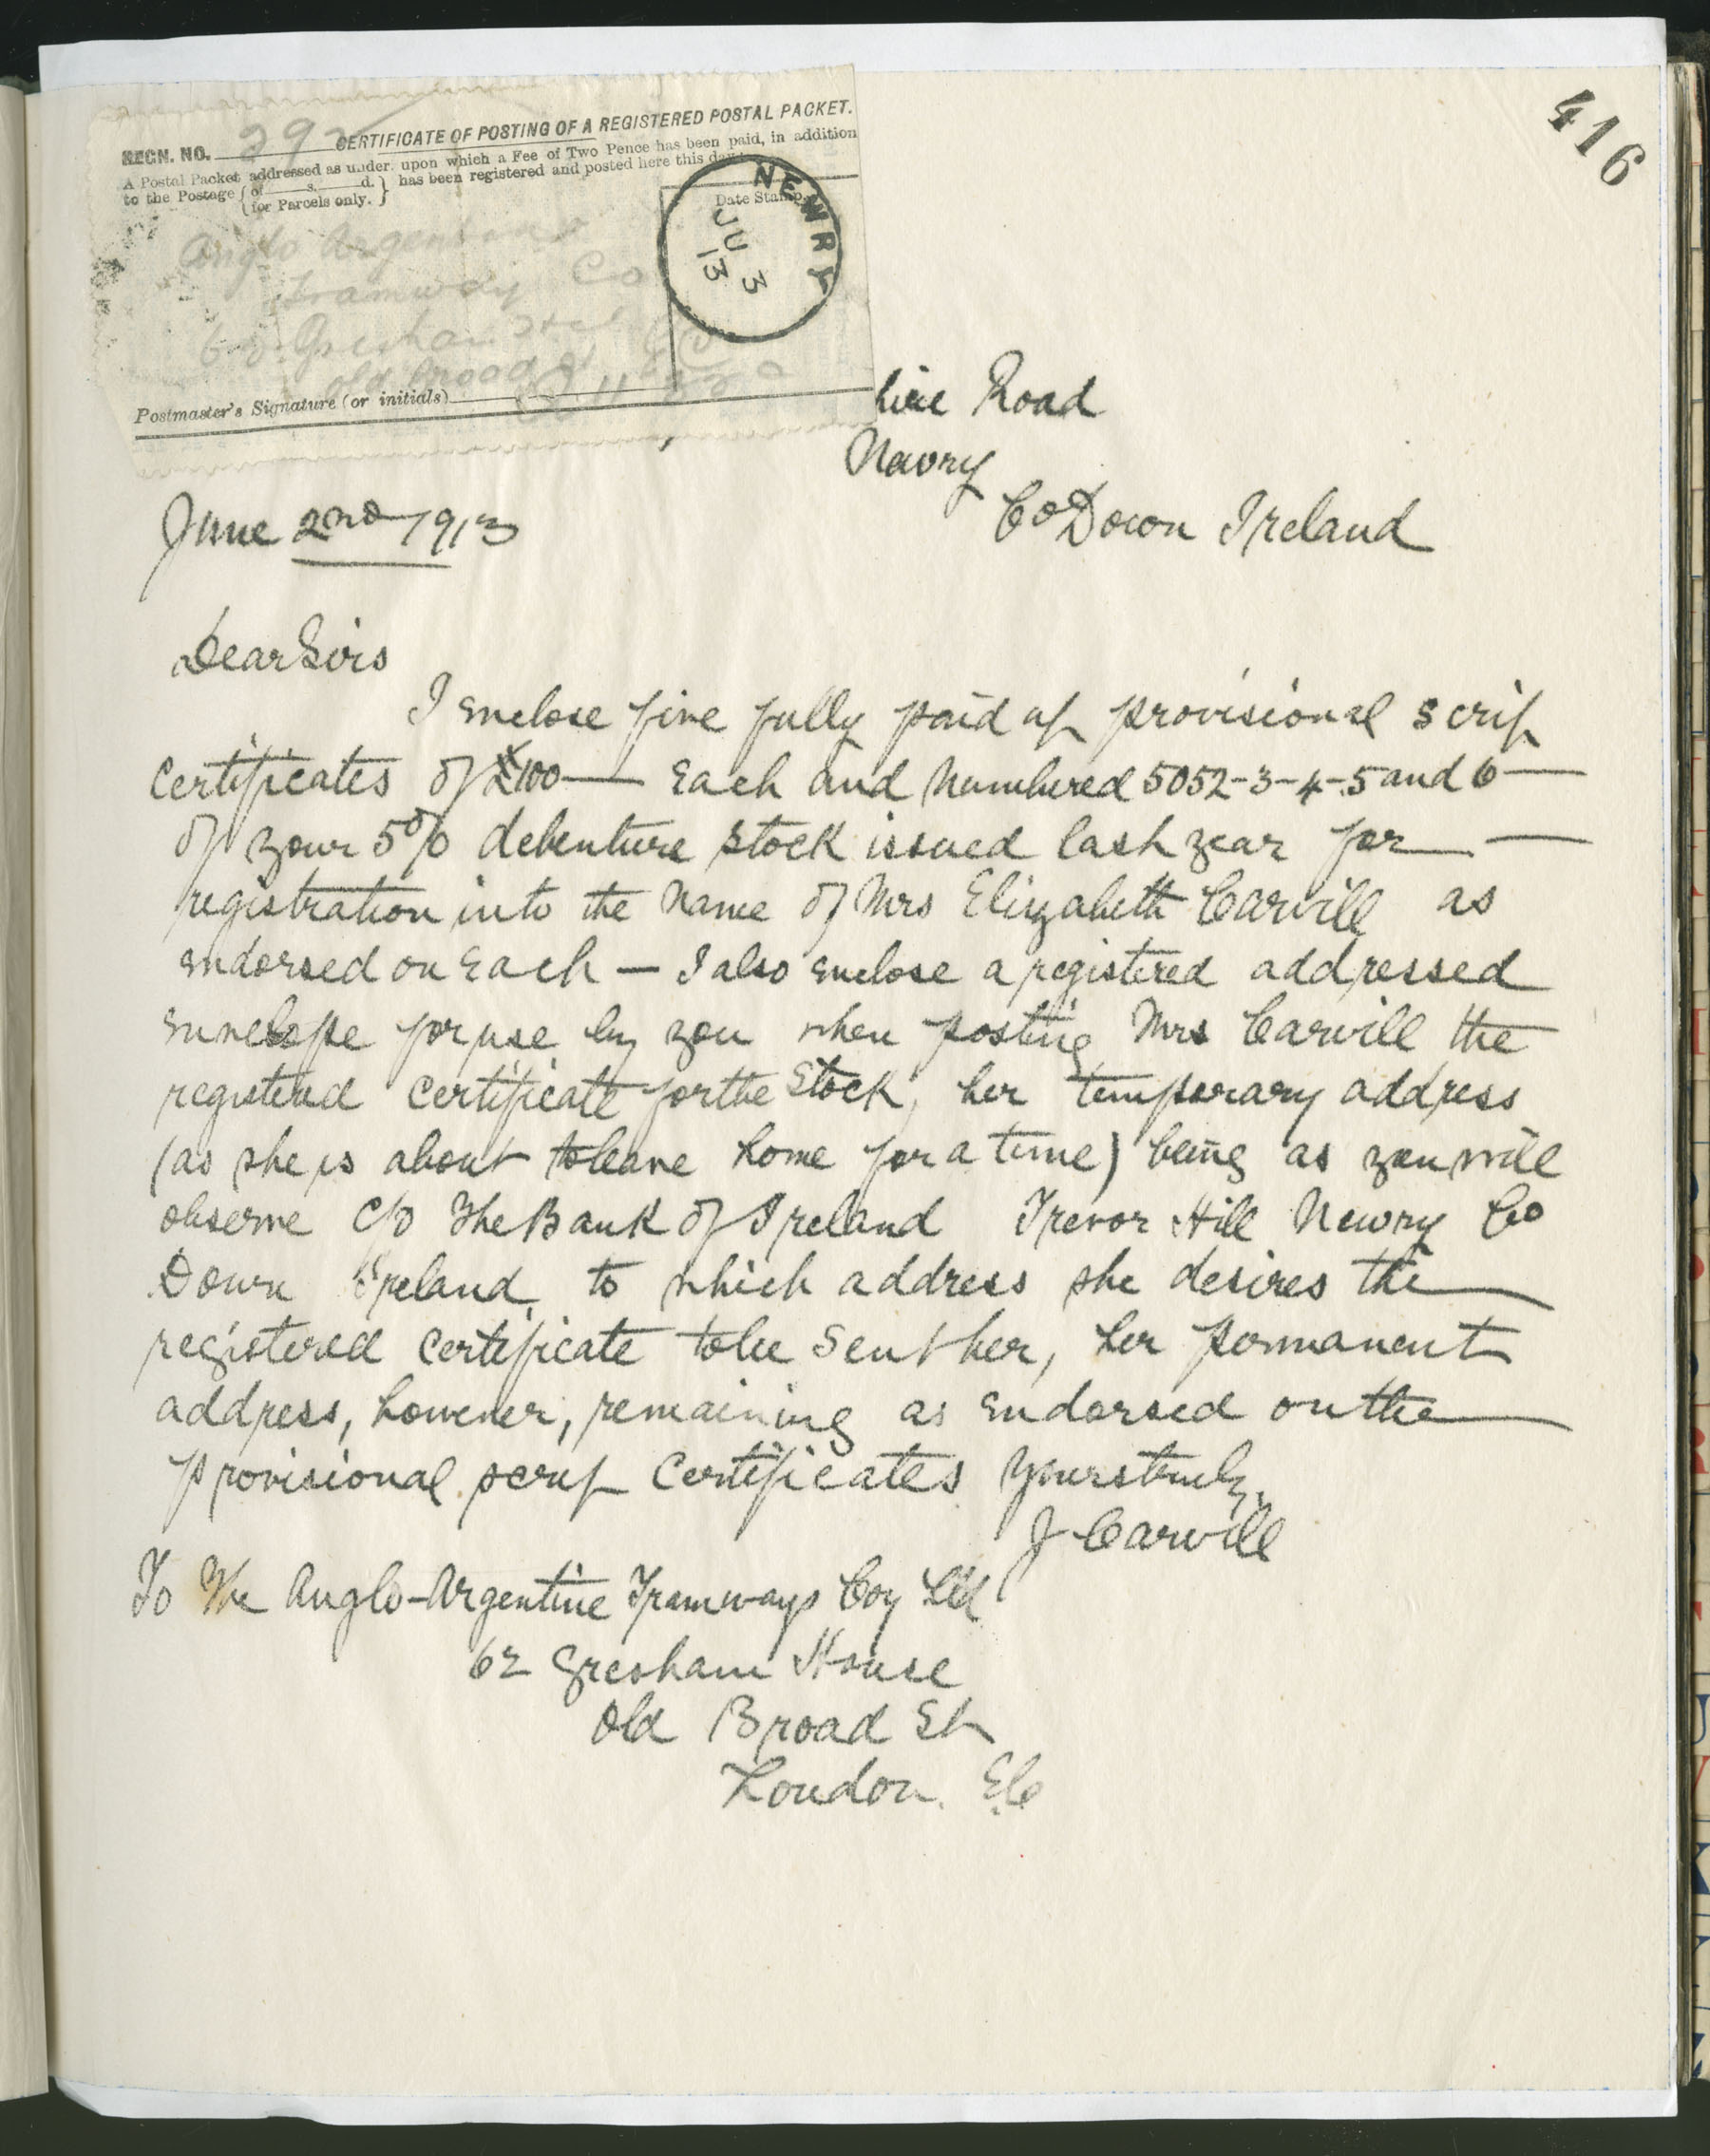 416
CERTIFICATE OF POSTING OF A REGISTERED POSTAL PACKET.
REGN. NO. 292
A Postal Packet addressed as under, upon which a Fee of Two Pence has been paid, in addition
to the Postage { of s. d. for Parcels only. } has been registered and posted here this day
Date Stamp
NEWRY
JU 3
13
Anglo Argentine
Tramway Co
Gresham
Old Broad St
Postmaster's Signature (or initials)
Road
Newry
Co Down Ireland
June 2nd 1913
Dear Sirs
I enclose five fully paid up provisional scrip
Certificates of £100 — Each and Numbered 5052-3-4-5 and 6 —
of your 5% debenture stock issued last year for —
registration into the name of Mrs Elizabeth Carvill as
endorsed on Each — I also enclose a registered addressed
envelope for use by you when posting Mrs Carvill the
registered Certificate for the Stock, her temporary address
(as she is about to leave home for a time) being as you will
observe c/o The Bank of Ireland Trevor Hill Newry Co
Down Ireland, to which address she desires the
registered Certificate to be Sent her, her permanent
address, however, remaining as endorsed on the
provisional scrip Certificates Yours truly,
J Carvill
To The Anglo-Argentine Tramways Coy Ltd
62 Gresham House
Old Broad St
London. E.C